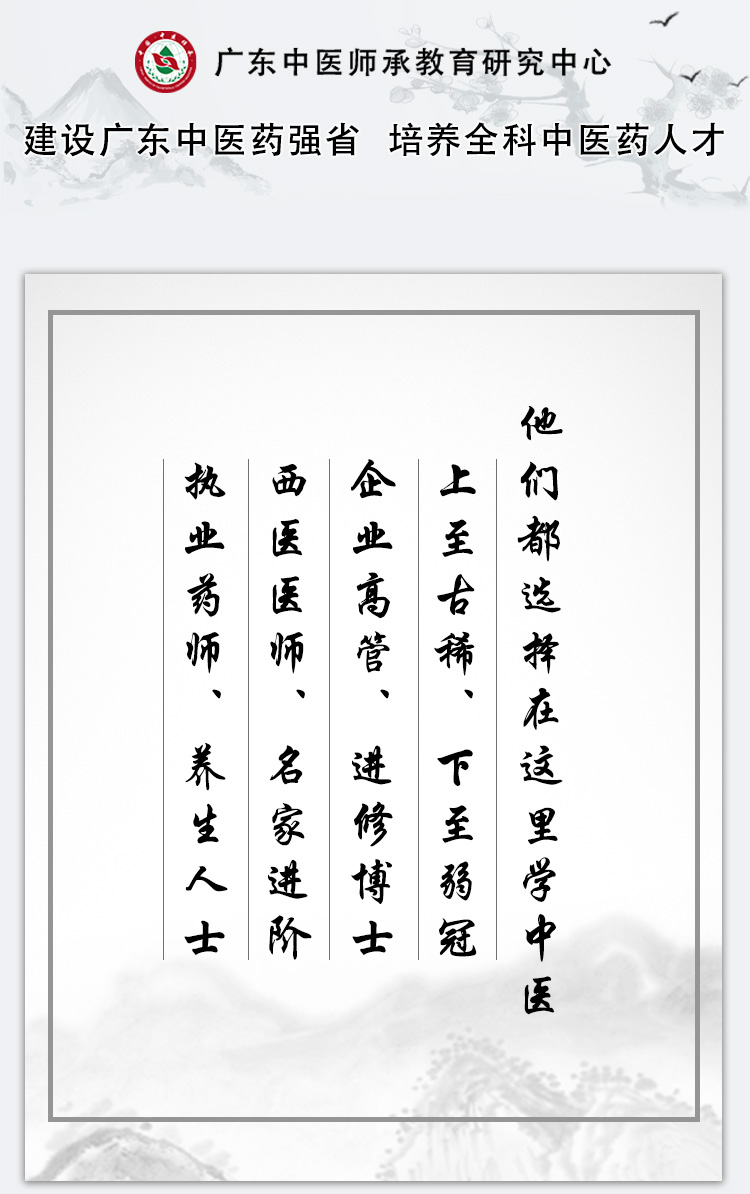 广东中医师承教育研究中心
建设广东中医药强省 培养全科中医药人才
他们都选择在这里学中医
上至古稀、下至弱冠
企业高管、进修博士
西医医师、名家进阶
执业药师、养生人士